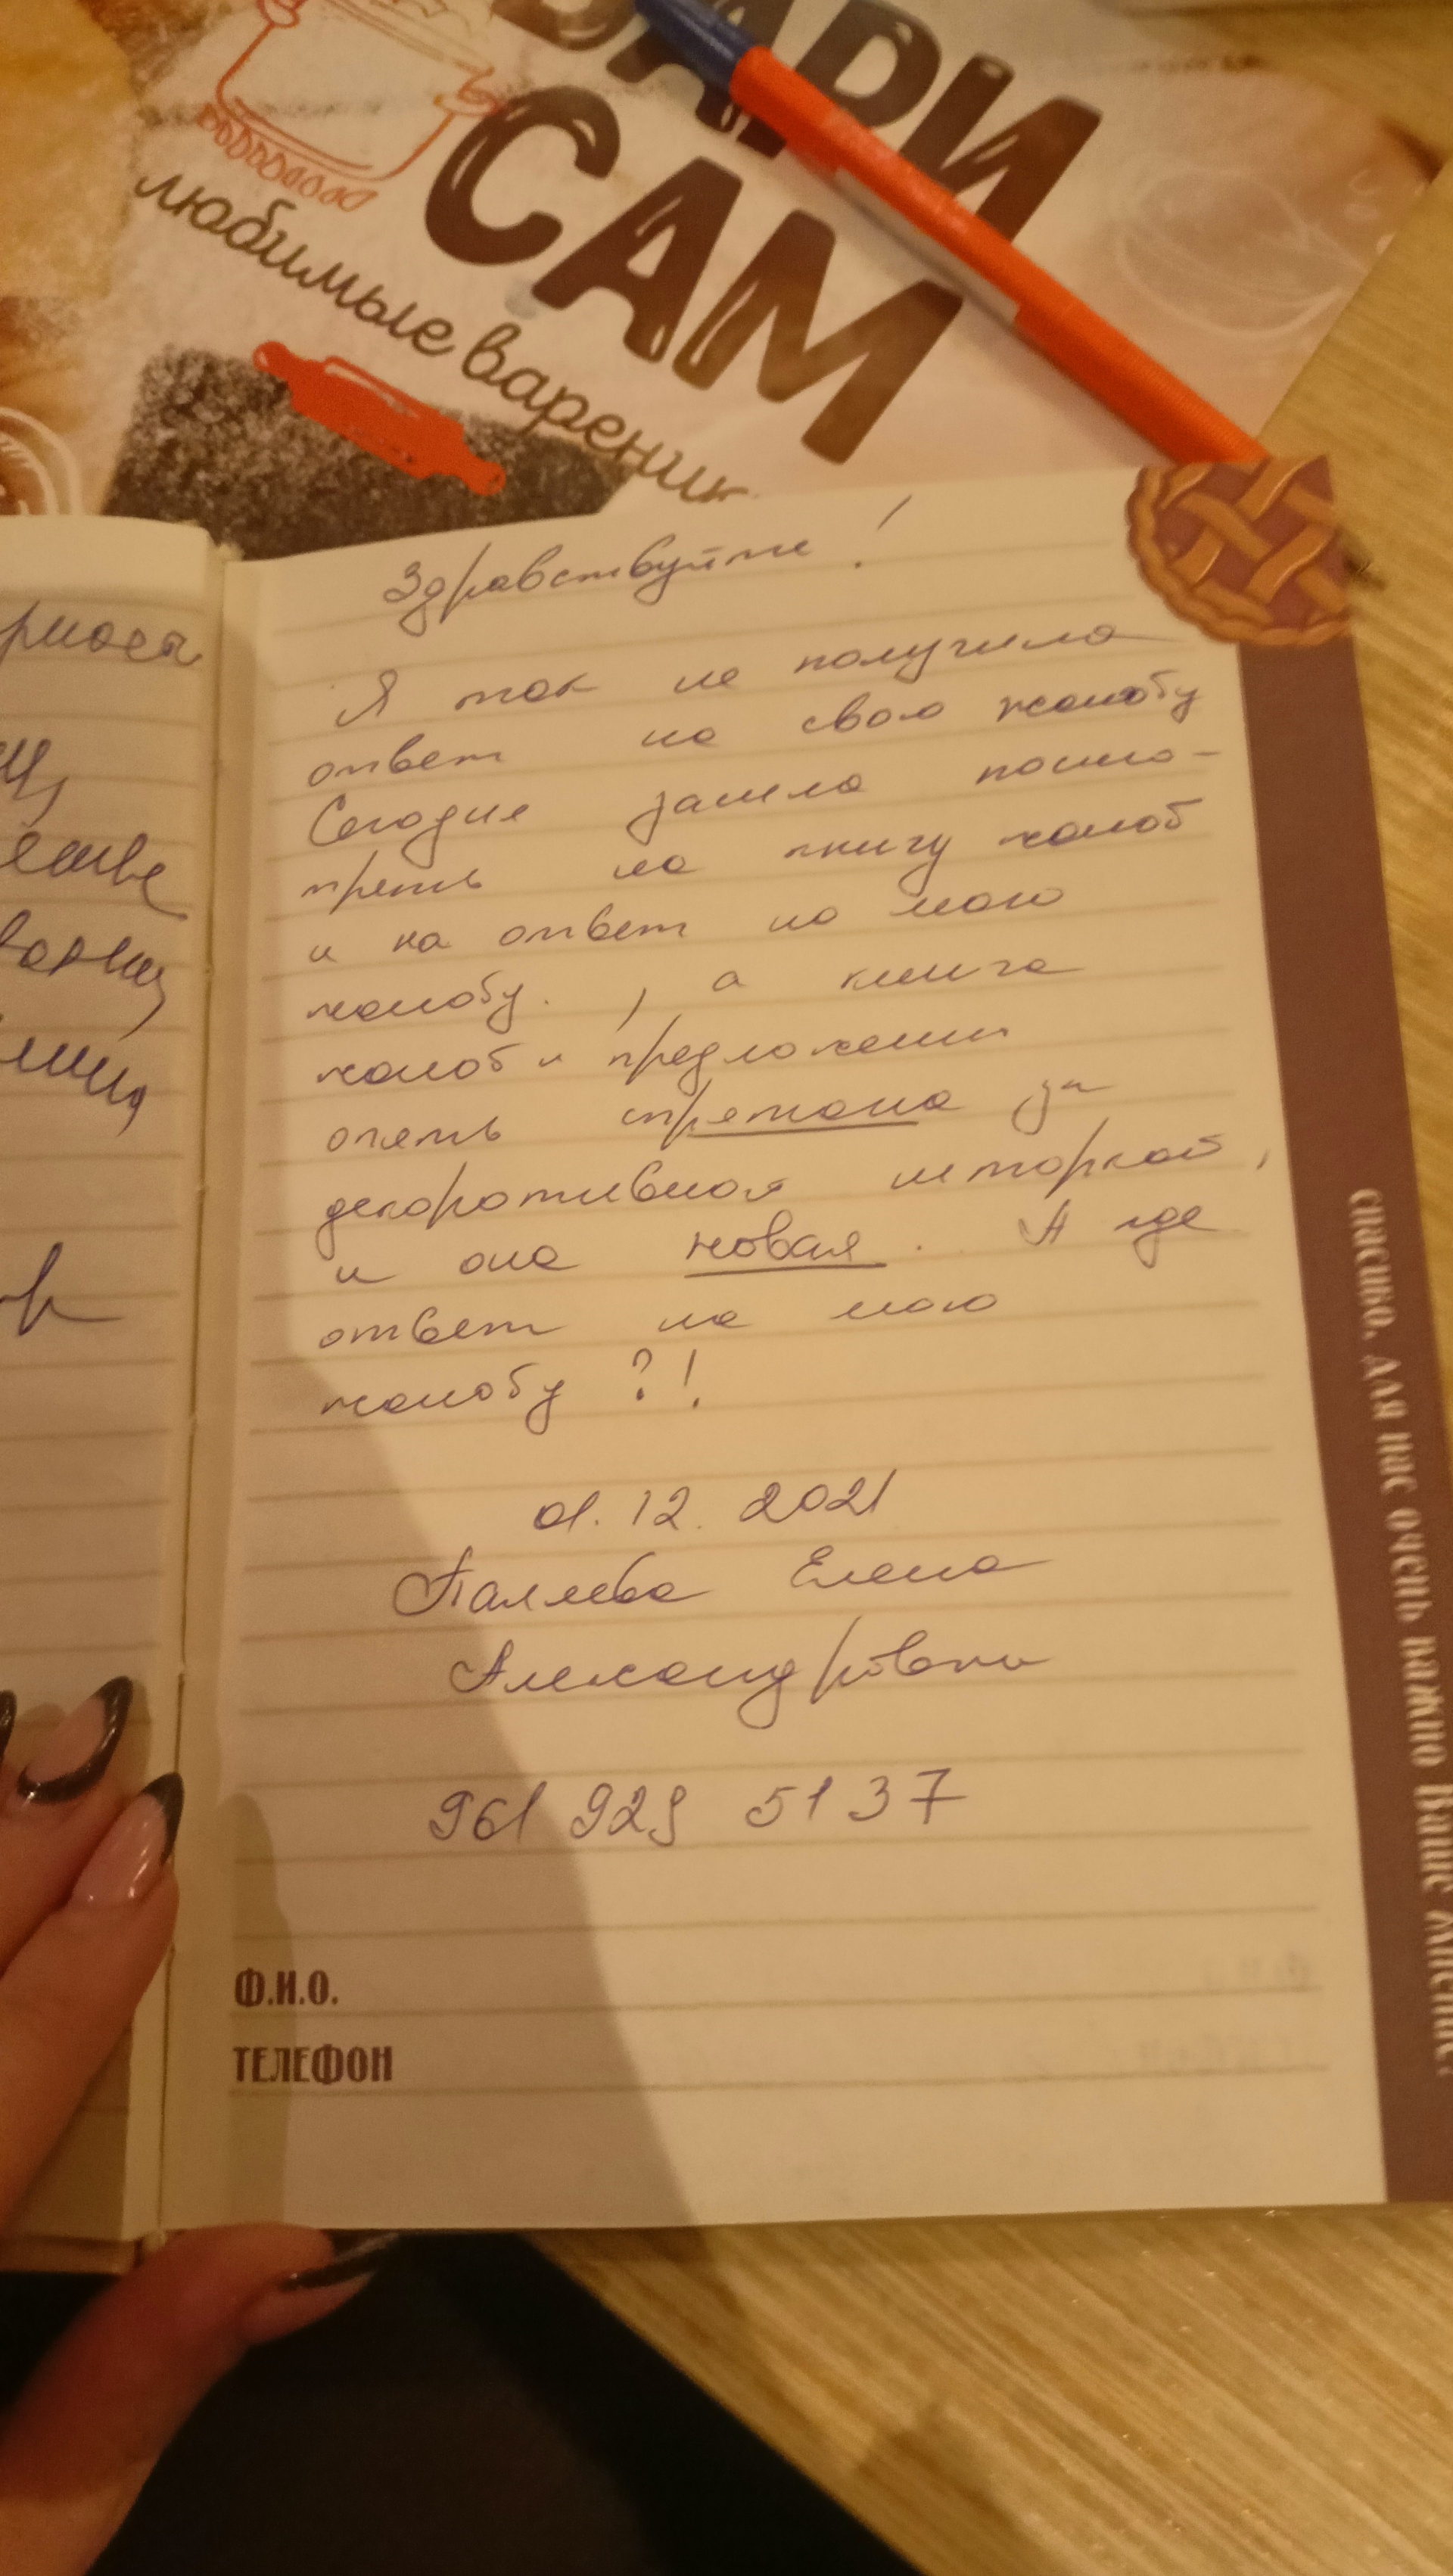 ВАРИ
САМ
любимые вареник
Здравствуйте!
Я так не получила
ответ на свою жалобу
Сегодня зашла посмо-
треть на книгу жалоб
и на ответ на мою
жалобу. , а книга
жалоб и предложении
очень спрятана за
декоративная шторкой,
и она новая. А где
ответ на мою
жалобу ?!
01.12.2021
Елена
Александровна
961 929 5137
Ф.И.О.
ТЕЛЕФОН
СПАСИБО, ДЛЯ НАС ОЧЕНЬ ВАЖНО ВАШЕ МНЕНИЕ!